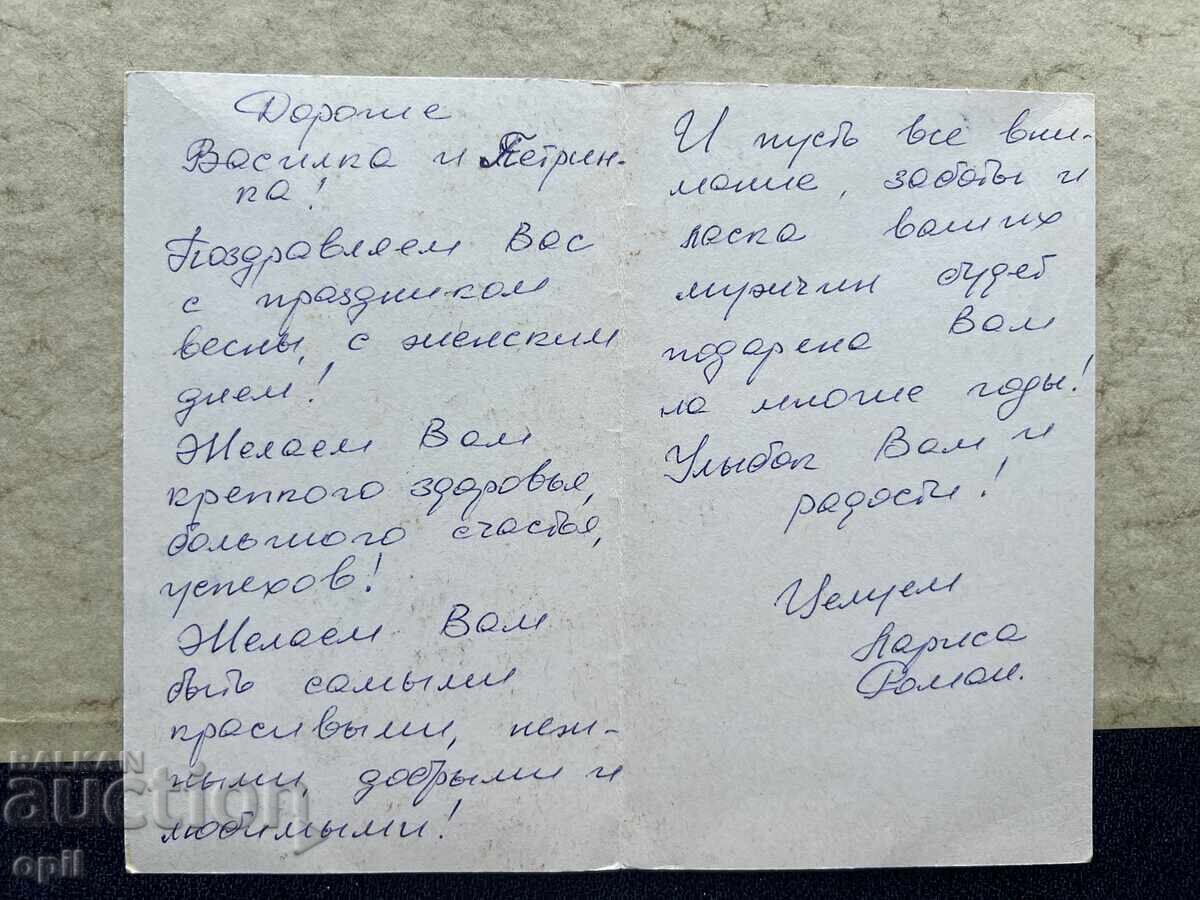 Дорогие
Василка и Петрин-
ка!
Поздравляем Вас
с праздником
весны, с женским
днем!
Желаем Вам
крепкого здоровья,
большого счастья,
успехов!
Желаем Вам
быть самыми
красивыми, неж-
ными, добрыми и
любимыми!
И пусть все вни-
мание, заботы и
ласка ваших
мужчин будет
подарена Вам
на многие годы!
Улыбок Вам и
радости!
Целуем
Лариса
Роман.
BALKAN
auction
opil